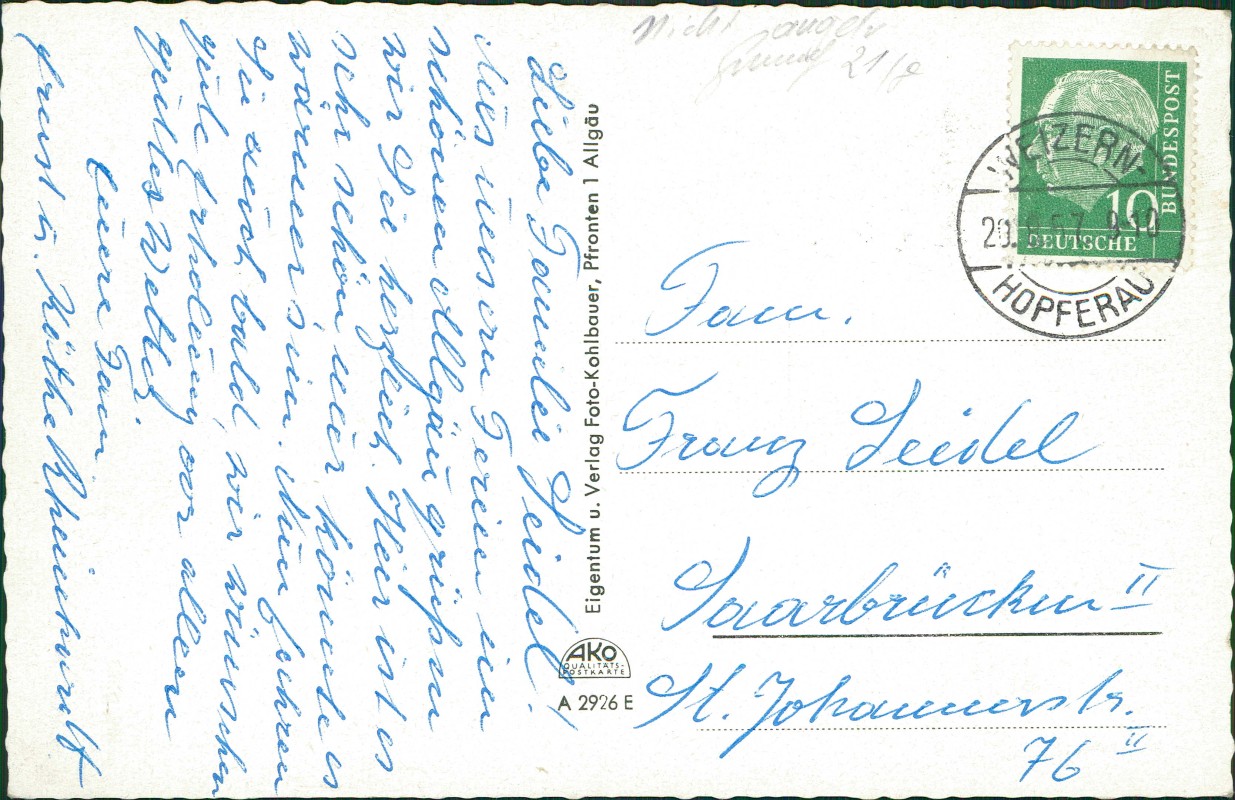 Liebe Familie Seidel!
Aus unseren Ferien im
schönen Allgäu grüßen
wir Sie herzlich. Hier ist es
sehr schön nur könnte es
wärmer sein. Nun fahren
Sie auch bald, wir wünschen
gute Erholung vor allem
gutes Wetter.
Eure Fam.
Ernst u. Käthe
Eigentum u. Verlag Foto-Kohlbauer, Pfronten 1 Allgäu
AKO
QUALITÄTS-
POSTKARTE
A 2926 E
Nicht
21/
DEUTSCHE
BUNDESPOST
10
WEIZERN-
20. 57. 9-10
HOPFERAU
Fam.
Franz Seidel
Saarbrücken II
St. Johannerstr.
76 II